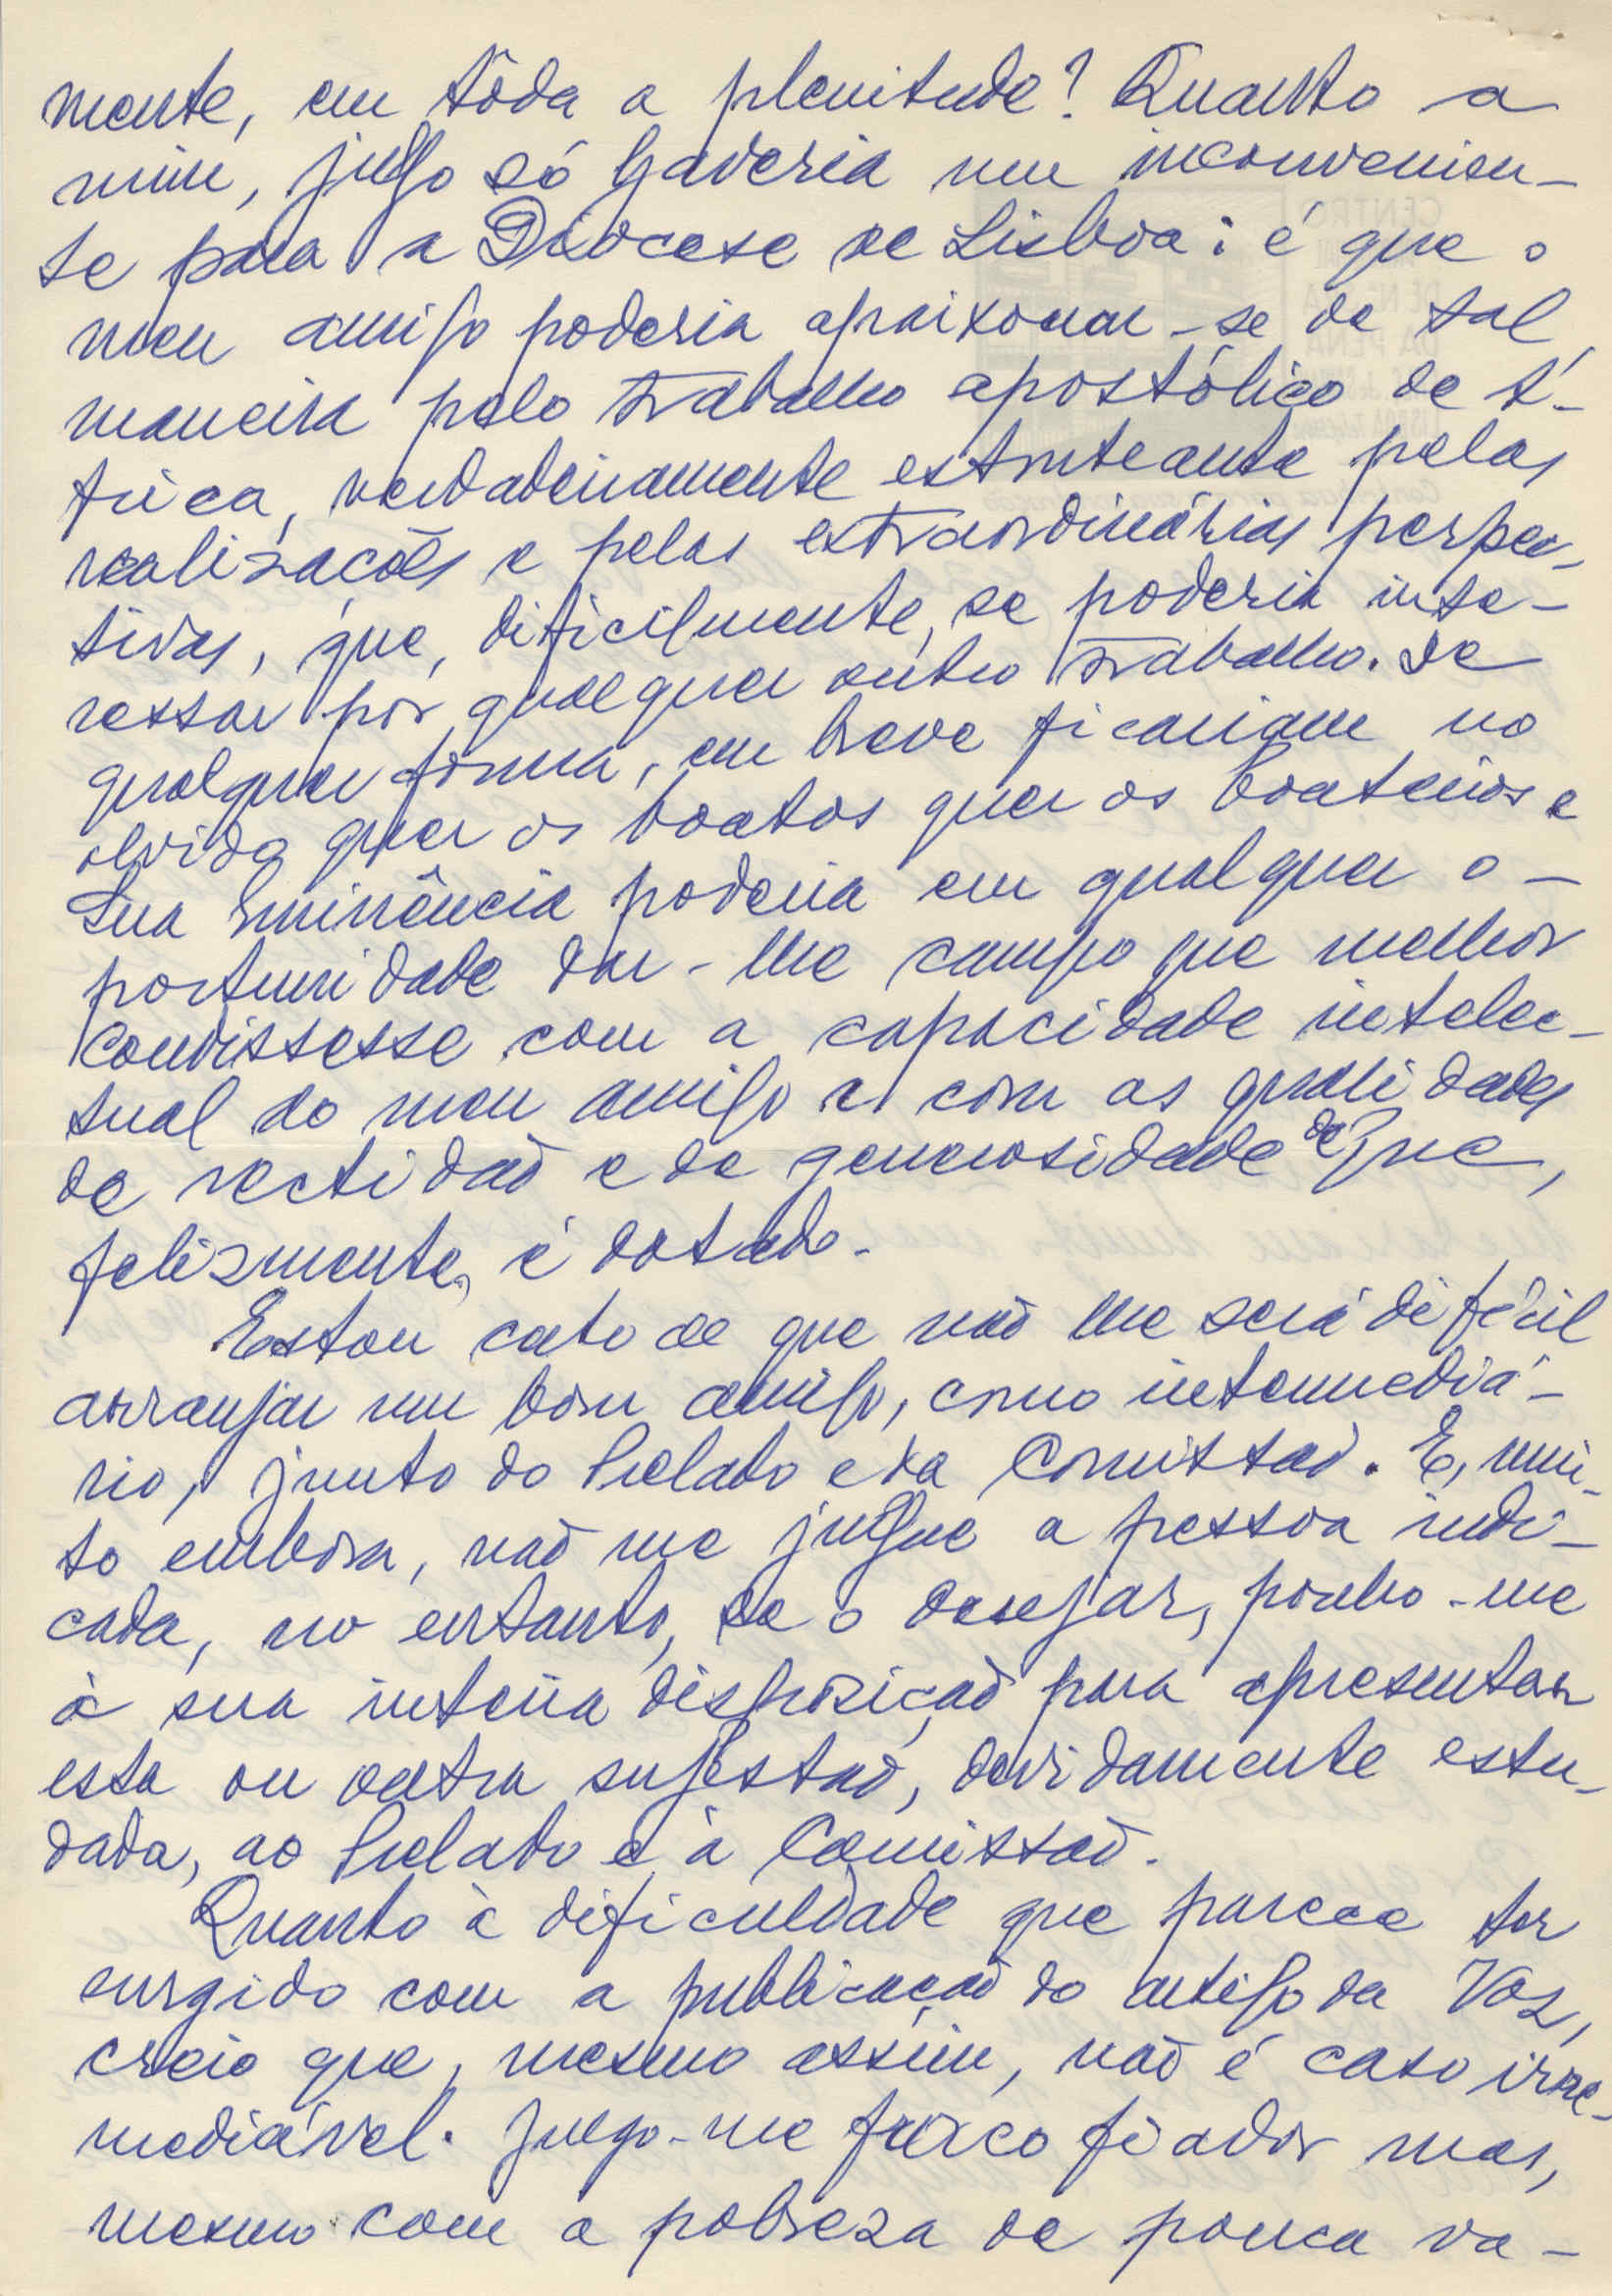 mente, em tôda a plenitude? Quanto a
mim, julgo só haveria um inconvenien-
te para a Diocese de Lisboa: é que o
meu amigo poderia apaixonar-se de tal
maneira pelo trabalho apostólico de A-
frica, verdadeiramente estonteante pelas
realizações e pelas extraordinárias perspec-
tivas, que, dificilmente, se poderia inte-
ressar por qualquer outro trabalho. De
qualquer forma, em breve ficariam no
olvido quer os boatos quer os boateiros e
Sua Eminência poderia em qualquer o-
portunidade dar-lhe campo que melhor
condissesse com a capacidade intelec-
tual do meu amigo e com as qualidades
de rectidão e de generosidade de que,
felizmente, é dotado.
Estou certo de que não lhe será difícil
arranjar um bom amigo, como intermediá-
rio, junto do Prelado e da Comissão. E, mui-
to embora, não me julgue a pessoa indi-
cada, no entanto, se o desejar, ponho-me
à sua inteira disposição para apresentar
esta ou outra sugestão, devidamente estu-
dada, ao Prelado e à Comissão.
Quanto à dificuldade que parece ter
surgido com a publicação do artigo da Voz,
creio que, mesmo assim, não é caso irre-
mediável. Julgo-me fraco fiador mas,
mesmo com a pobreza de pouca va-